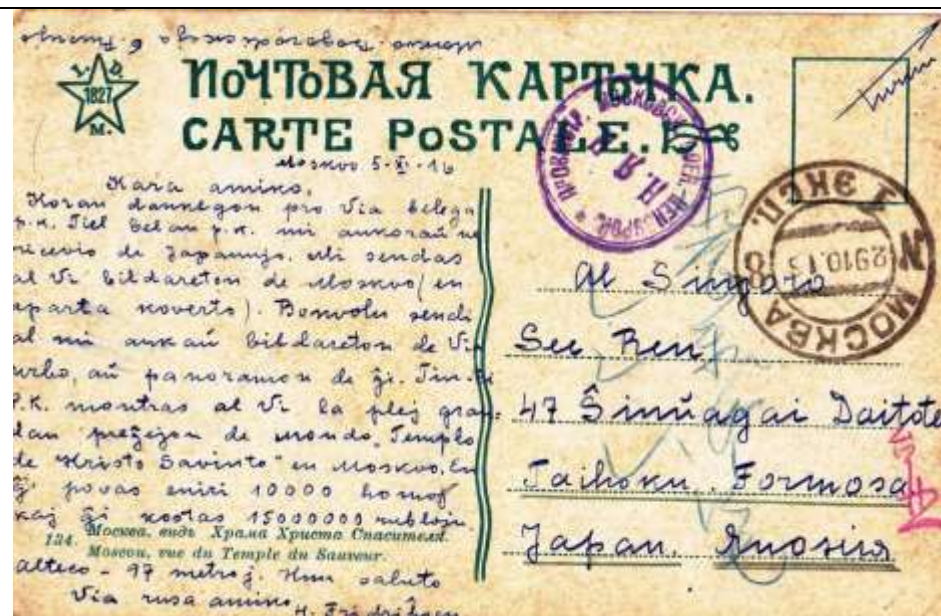 1827
М.
ПОЧТОВАЯ КАРТОЧКА.
CARTE POSTALE.
Moskvo 5-XI-16
Kara amiko,
Koran dankegon pro Via belega
p.k. Tiel belan p.k. mi ankoraŭ ne
ricevis de Japanujo. Mi sendas
al Vi bildareton de Moskvo (en
aparta koverto). Bonvolu sendi
al mi ankaŭ bildareton de Via
urbo, aŭ panoramon de ĝi.
P.K. montras al Vi la plej gran-
dan preĝejon de mondo "Templo
de Kristo Savinto" en Moskvo. En
ĝi povas eniri 10000 homoj
kaj ĝi kostas 15000000 rubloj.
124. Москва, видъ Храма Христа Спасителя.
Moscou, vue du Temple du Sauveur.
alteco - 97 metroj. saluto
Via rusa amiko
МОСКВА
I ЭКСП.
Al Sinjoro
See Ren
47 Ŝinŭagai Daitote
Taihoku. Formosa
Japan. Япония